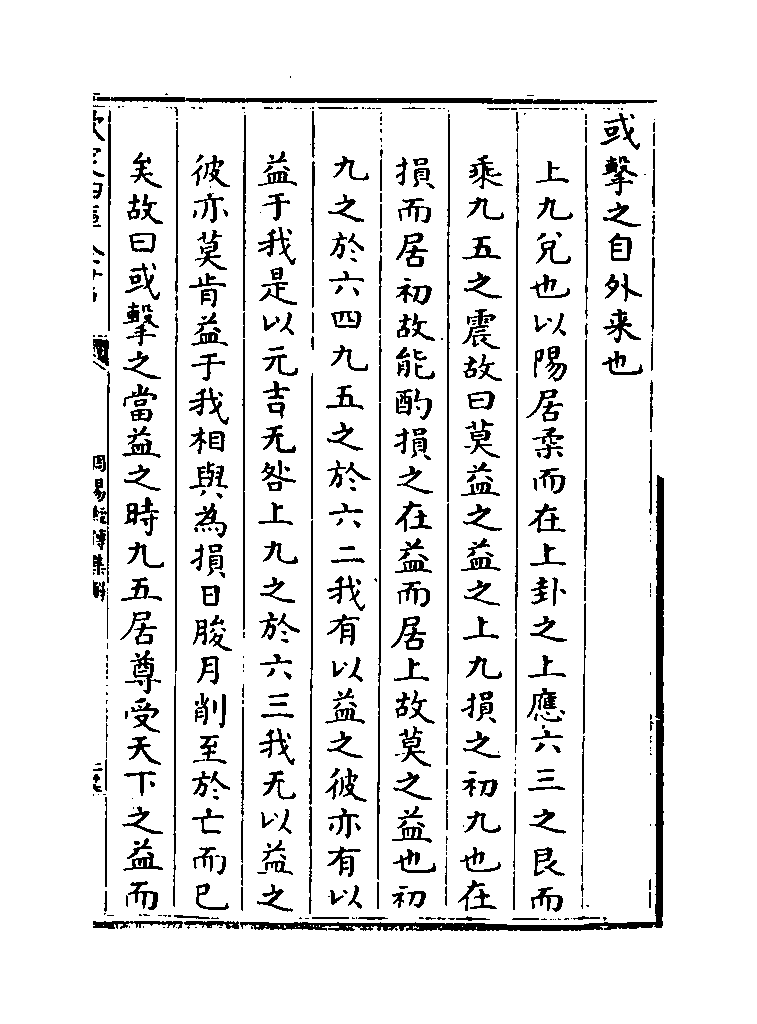 或擊之自外来也
上九兌也以陽居柔而在上卦之上應六三之艮而
乘九五之震故曰莫益之益之上九損之初九也在
損而居初故能酌損之在益而居上故莫之益也初
九之於六四九五之於六二我有以益之彼亦有以
益于我是以元吉无咎上九之於六三我无以益之
彼亦莫肯益于我相與為損日朘月削至於亡而已
矣故曰或擊之當益之時九五居尊受天下之益而
周易經傳集解